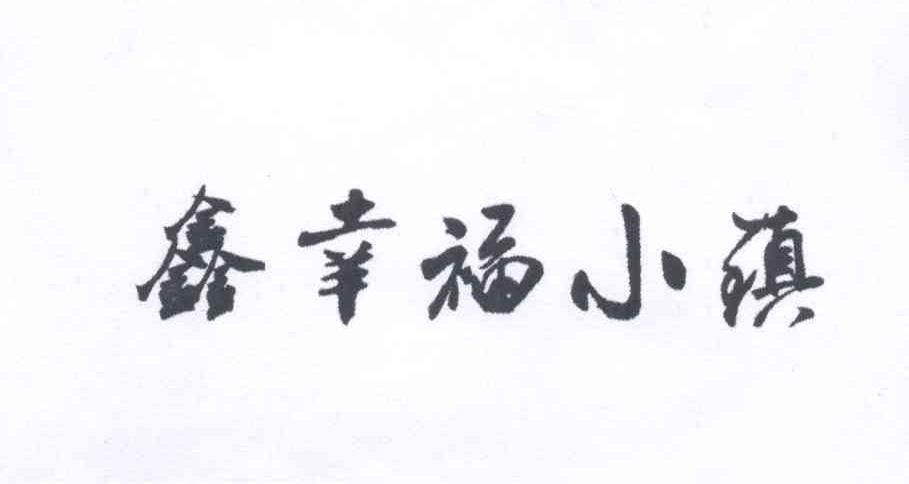 鑫幸福小镇